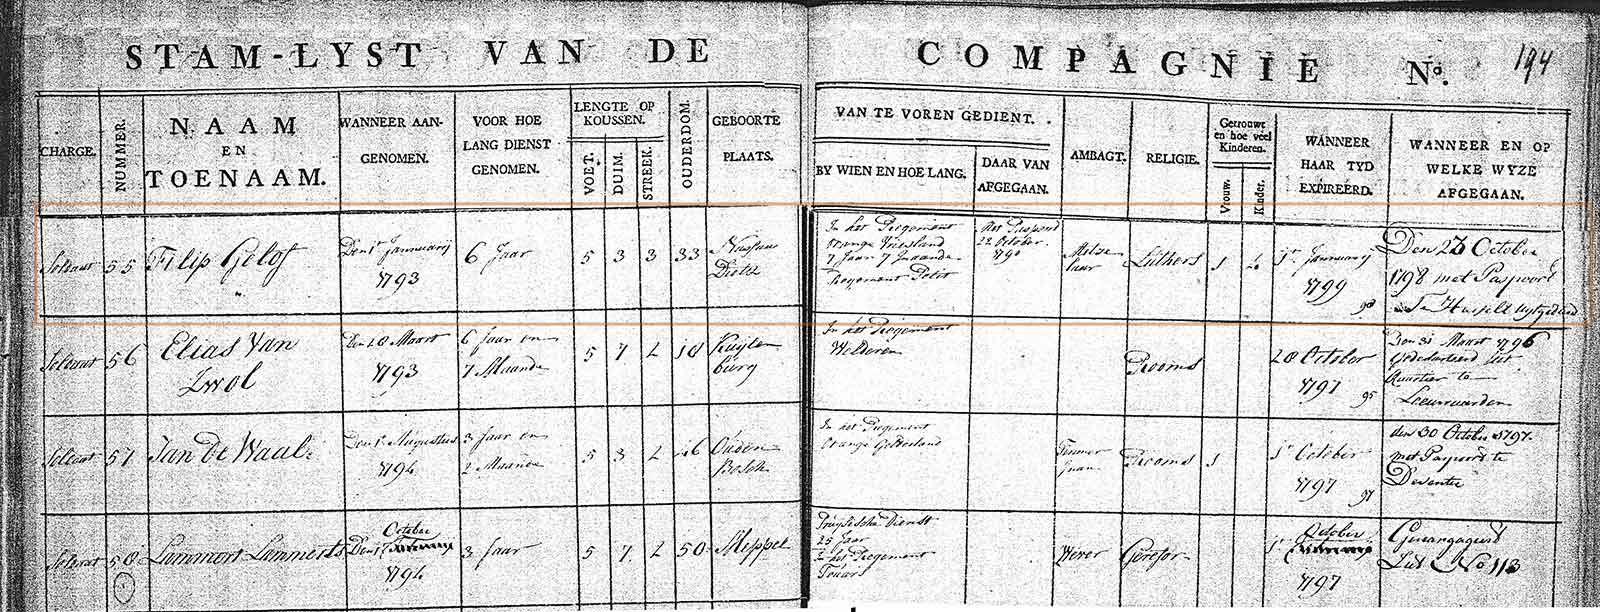 STAM-LYST VAN DE COMPAGNIE No. 194
CHARGE.
NUMMER.
NAAM
EN
TOENAAM.
WANNEER AAN-
GENOMEN.
VOOR HOE
LANG DIENST
GENOMEN.
LENGTE OP
KOUSSEN.
VOET.
DUIM.
STREEK.
OUDERDOM.
GEBOORTE
PLAATS.
VAN TE VOREN GEDIENT.
BY WIEN EN HOE LANG.
DAAR VAN
AFGEGAAN.
AMBAGT.
RELIGIE.
Getrouwt
en hoe veel
Kinderen.
Vrouw.
Kinder.
WANNEER
HAAR TYD
EXPIREERD.
WANNEER EN OP
WELKE WYZE
AFGEGAAN.
Soldaat
55
Filip Gelof
Den 1e Jannuarij
1793
6 Jaar
5 3 3
33
Nassau
Dietz
In het Regement
Orange Vriesland
7 Jaar 7 Maande
Regement
Met Paspord
22 October
1790
Luthers
1
1e Jannuarij
1799
98
Den 26 October
1798 met Paspoort
Te Hasselt uytgediend
Soldaat
56
Elias Van
Zwol
Den 28 Maart
1793
6 Jaar en
7 Maande
5 7 2
18
Kuylen
burg
In het Regement
Welderen
Rooms
28 October
1797
95
Den 31 Maart 1796
Gedeserteerd uit
Quartier te
Leeuwarden
Soldaat
57
Jan De Waal
Den 1e Augustus
1794
3 Jaar en
2 Maande
5 3 2
46
Ouden
Bosch
In het Regement
Orange Gelderland
Timmer
man
Rooms
1
1e October
1797
97
den 30 October 1797
met Paspoort te
Deventer
Soldaat
58
Lammert Lammerts
October
Den 1e
1794
3 Jaar
5 7 2
50
Meppel
Pruysische Dienst
25 Jaar
In het Regement
Wever
Gerefor
October
1e
1797
Gereangageerd
No 113